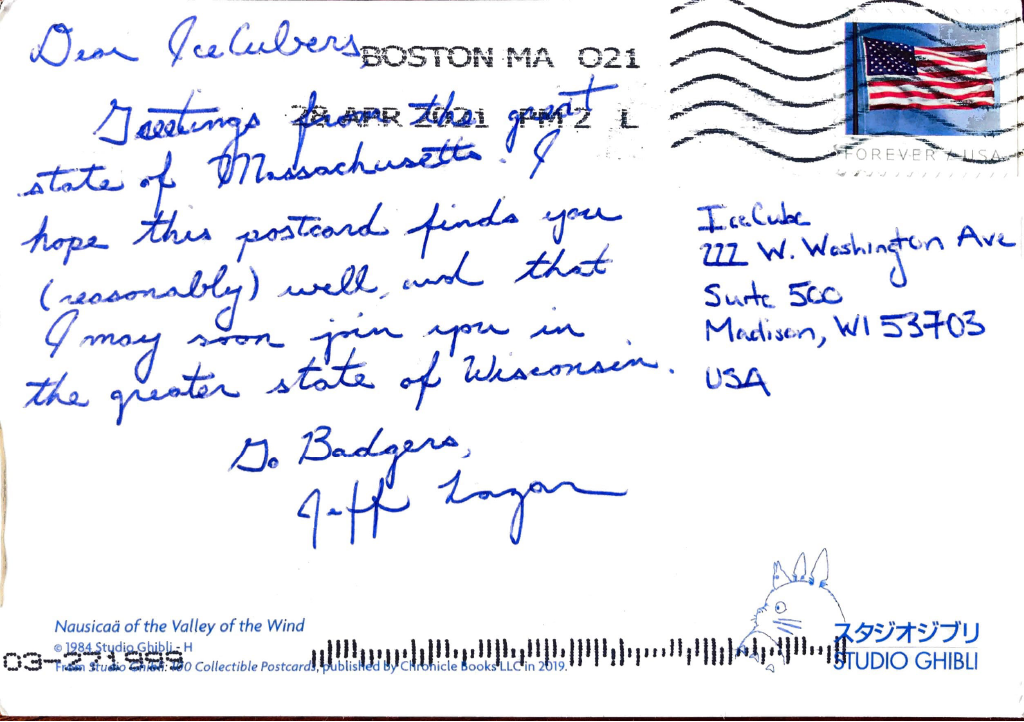 Dear IceCubers,
BOSTON MA 021
28 APR 2021 PM 2 L
Greetings from the great
state of Massachusetts. I
hope this postcard finds you
(reasonably) well, and that
I may soon join you in
the greater state of Wisconsin.
Go Badgers,
Jeff Lazar
FOREVER / USA
IceCube
222 W. Washington Ave
Suite 500
Madison, WI 53703
USA
Nausicaä of the Valley of the Wind
© 1984 Studio Ghibli - H
From Studio Ghibli: 100 Collectible Postcards, published by Chronicle Books LLC in 2019.
03-271999
スタジオジブリ
STUDIO GHIBLI